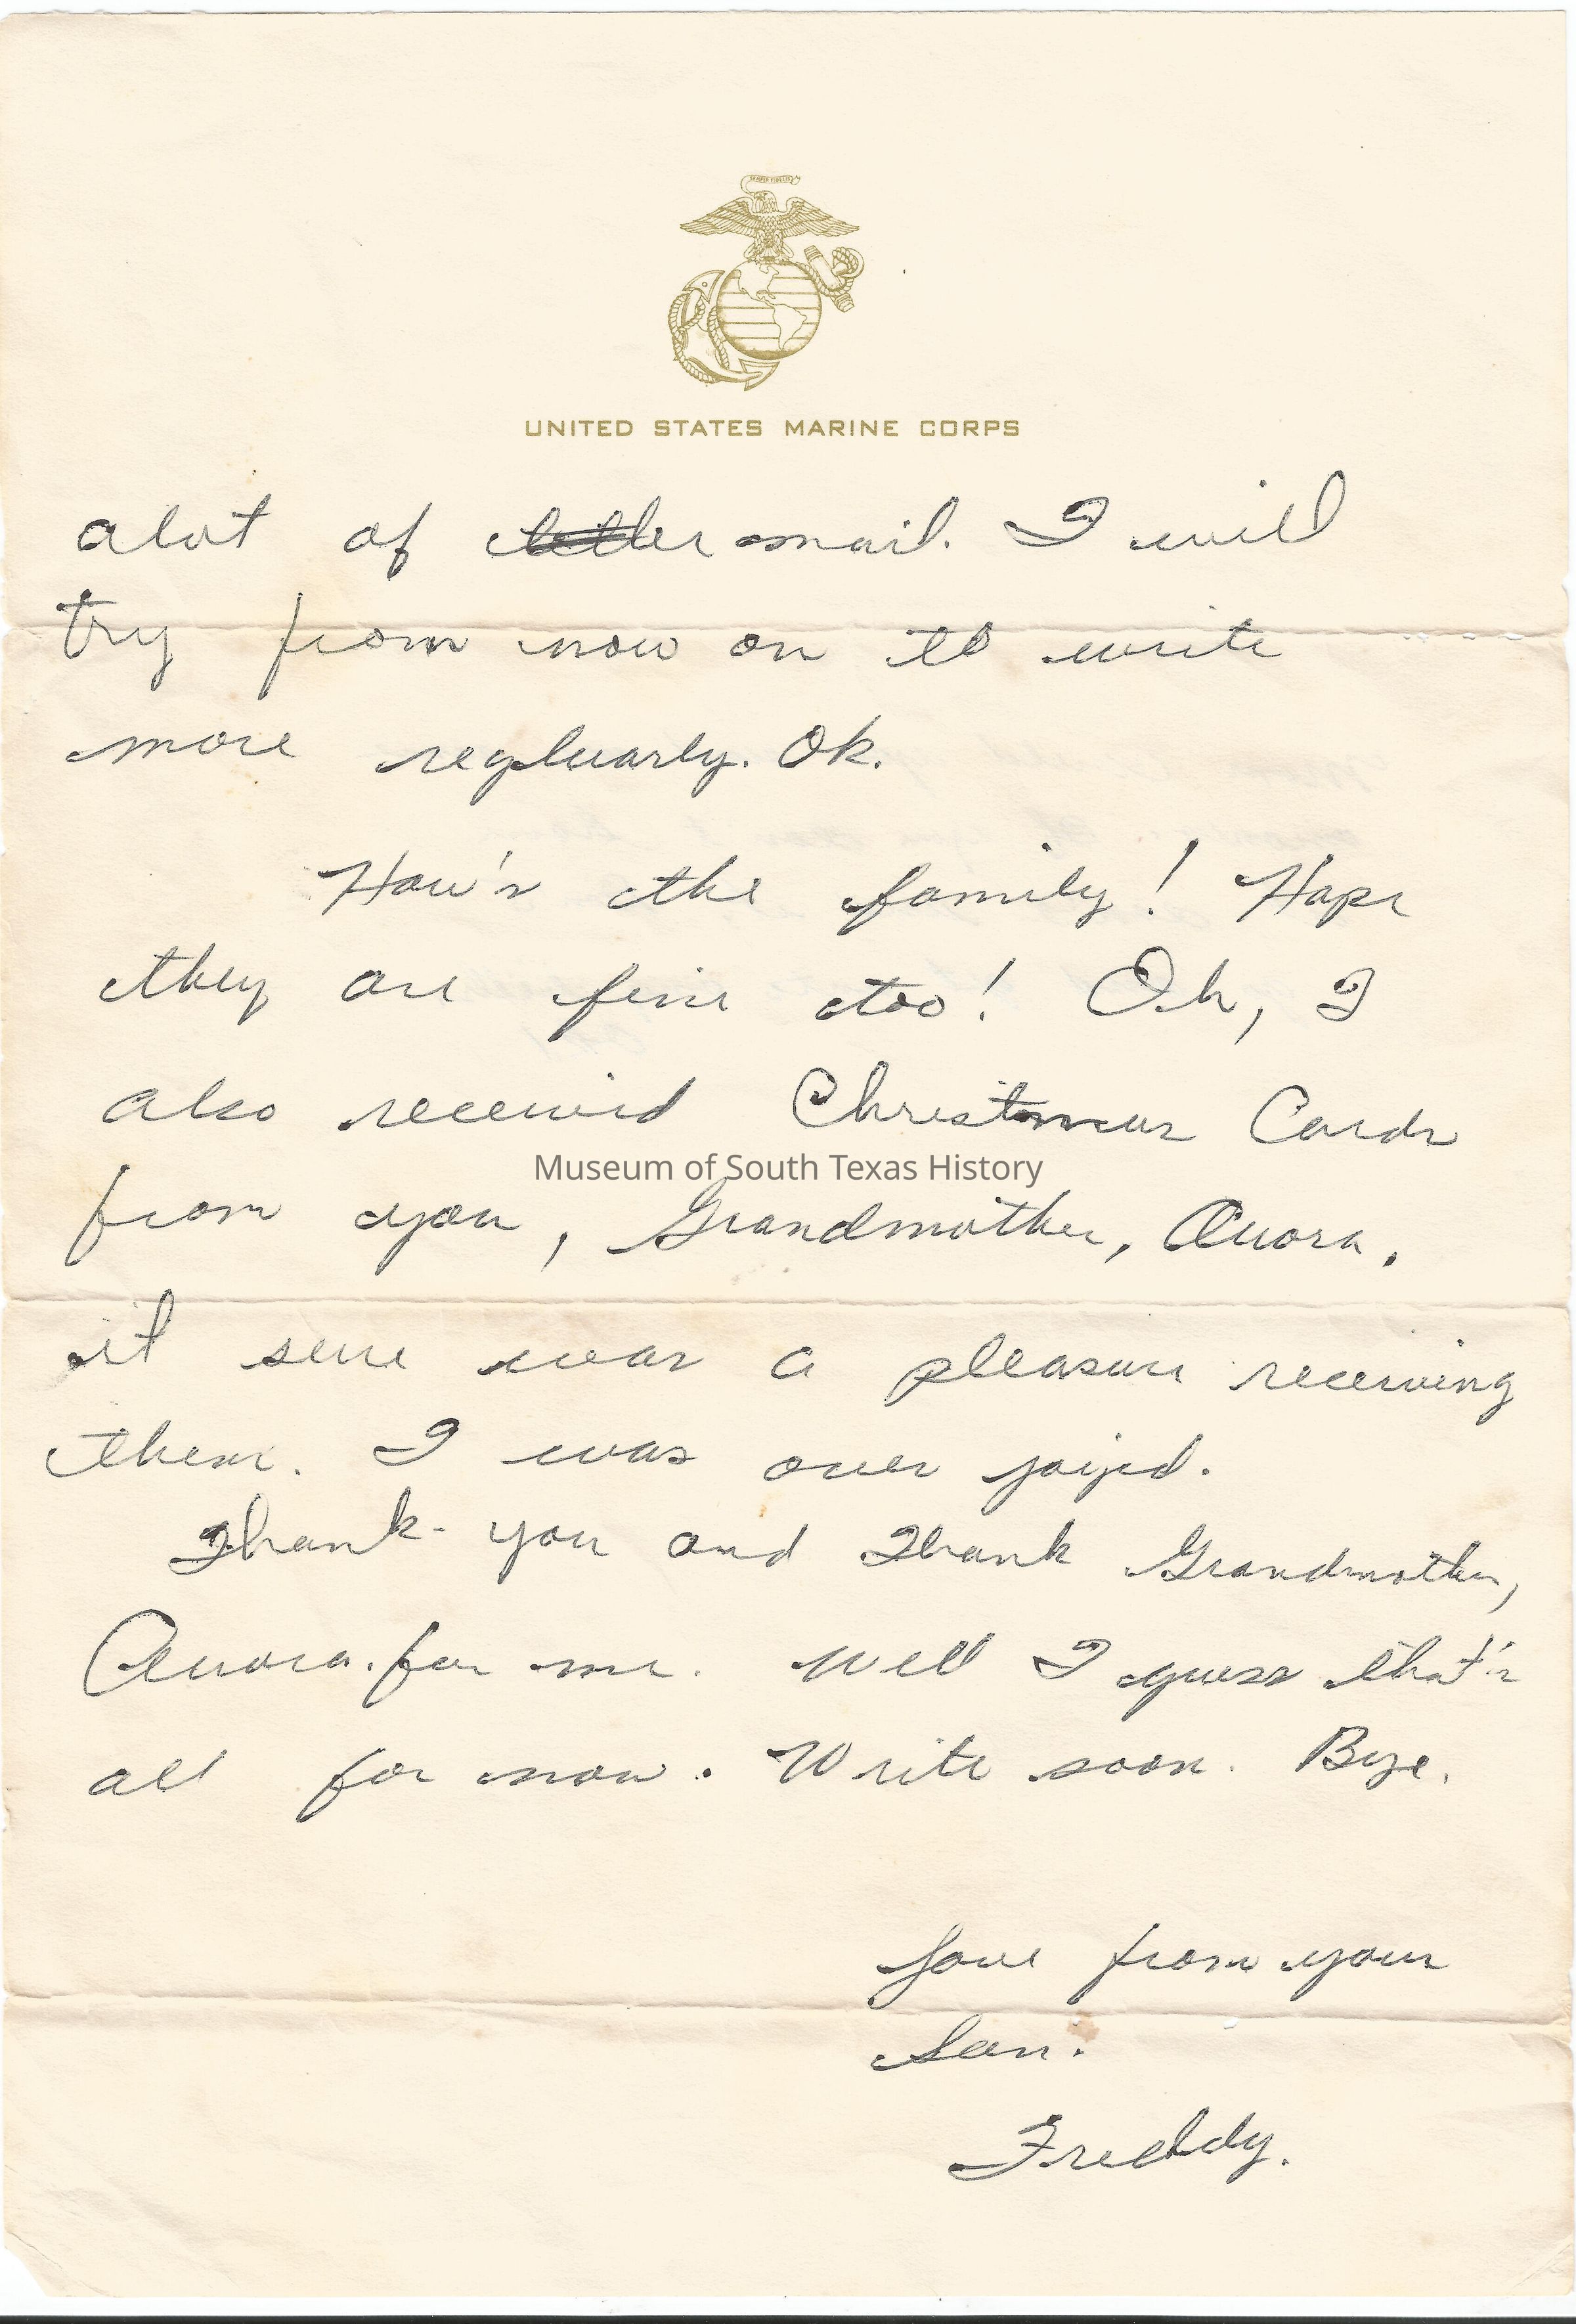 SEMPER FIDELIS
UNITED STATES MARINE CORPS
alot of letter mail. I will
try from now on to write
more regluarly. Ok.
How's the family! Hope
they are fine too! Oh, I
also received Christmas Cards
from you, Grandmother, Auora.
it sure was a pleasure receiving
them. I was over joyed.
Museum of South Texas History
Thank-you and Thank Grandmother,
Auora. for me. Well I guess that's
all for now. Write soon. Bye.
Love from your
Son.
Freddy.